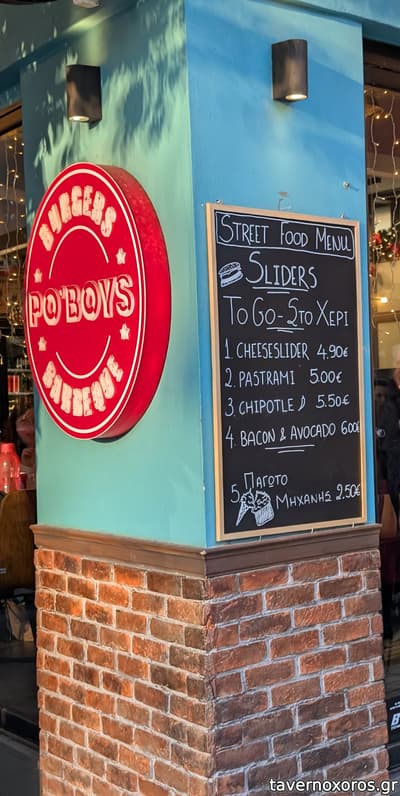 BURGERS
PO'BOYS
BARBEQUE
STREET FOOD MENU
SLIDERS
TO GO - ΣΤΟ ΧΕΡΙ
1. CHEESESLIDER 4.90€
2. PASTRAMI 5.00€
3. CHIPOTLE 5.50€
4. BACON & AVOCADO 6.00€
5. ΠΑΓΩΤΟ
ΜΗΧΑΝΗΣ 2.50€
tavernoxoros.gr